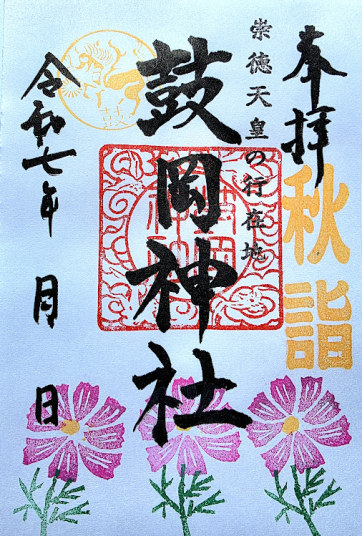 奉拝
秋詣
崇徳天皇の行在地
鼓岡神社
令和七年 月 日